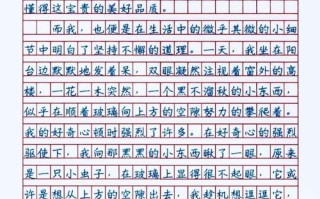 懂得这宝贵的美好品质。
而我，也便是在生活中的微乎其微的小细
节中明白了坚持不懈的道理。一天，我坐在阳
台边默默地发着呆，双眼凝然注视着窗外的高
楼，一花一木突然，一个黑不溜秋的小东西，
似乎在顺着玻璃向上方的空隙努力的攀爬着。
我的好奇心顿时强烈了许多。在好奇心的强烈
驱使下，我向那黑黑的小东西瞅了一眼，原来
是一只小虫子，在玻璃上显得很不起眼，它或
许是想从上方的空隙出去，我趁机想逗逗它，